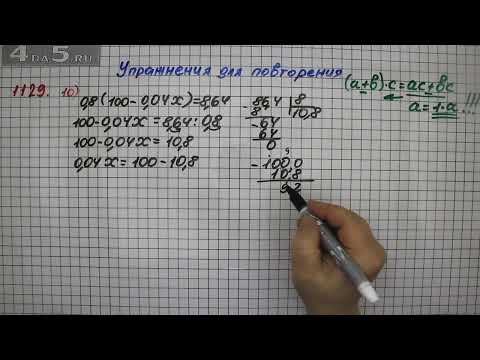 4DA5.RU
Упражнения для повторения
1129. 10)
(a+b)·c=ac+bc
a=1·a !!!
0,8(100-0,04x)=8,64
100-0,04x=8,64:0,8
100-0,04x=10,8
0,04x=100-10,8
-86,4 | 8
8 | 10,8
-64
64
0
9
-100,0
10,8
9,2